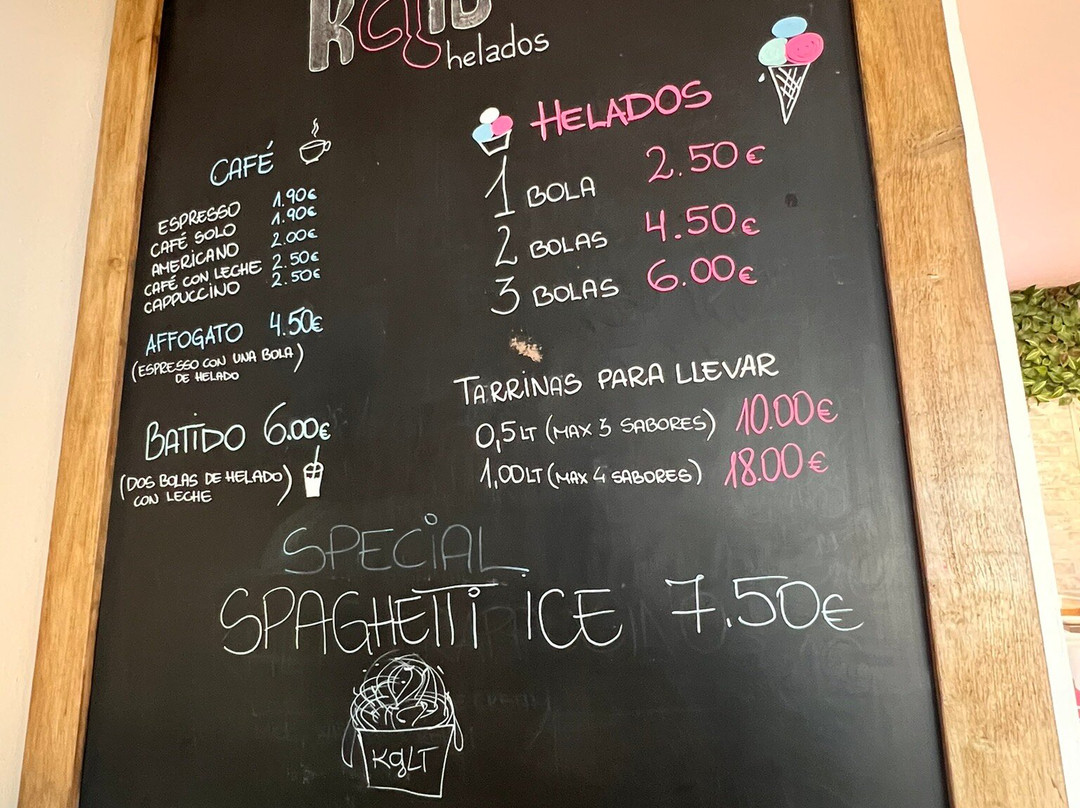 helados
CAFÉ
ESPRESSO 1.90€
CAFÉ SOLO 1.90€
AMERICANO 2.00€
CAFÉ CON LECHE 2.50€
CAPPUCCINO 2.50€
AFFOGATO 4.50€
(ESPRESSO CON UNA BOLA)
DE HELADO
BATIDO 6.00€
(DOS BOLAS DE HELADO)
CON LECHE
HELADOS
1 BOLA 2.50€
2 BOLAS 4.50€
3 BOLAS 6.00€
TARRINAS PARA LLEVAR
0,5LT (MAX 3 SABORES) 10.00€
1,00LT (MAX 4 SABORES) 18.00€
SPECIAL
SPAGHETTI ICE 7.50€
KgLT